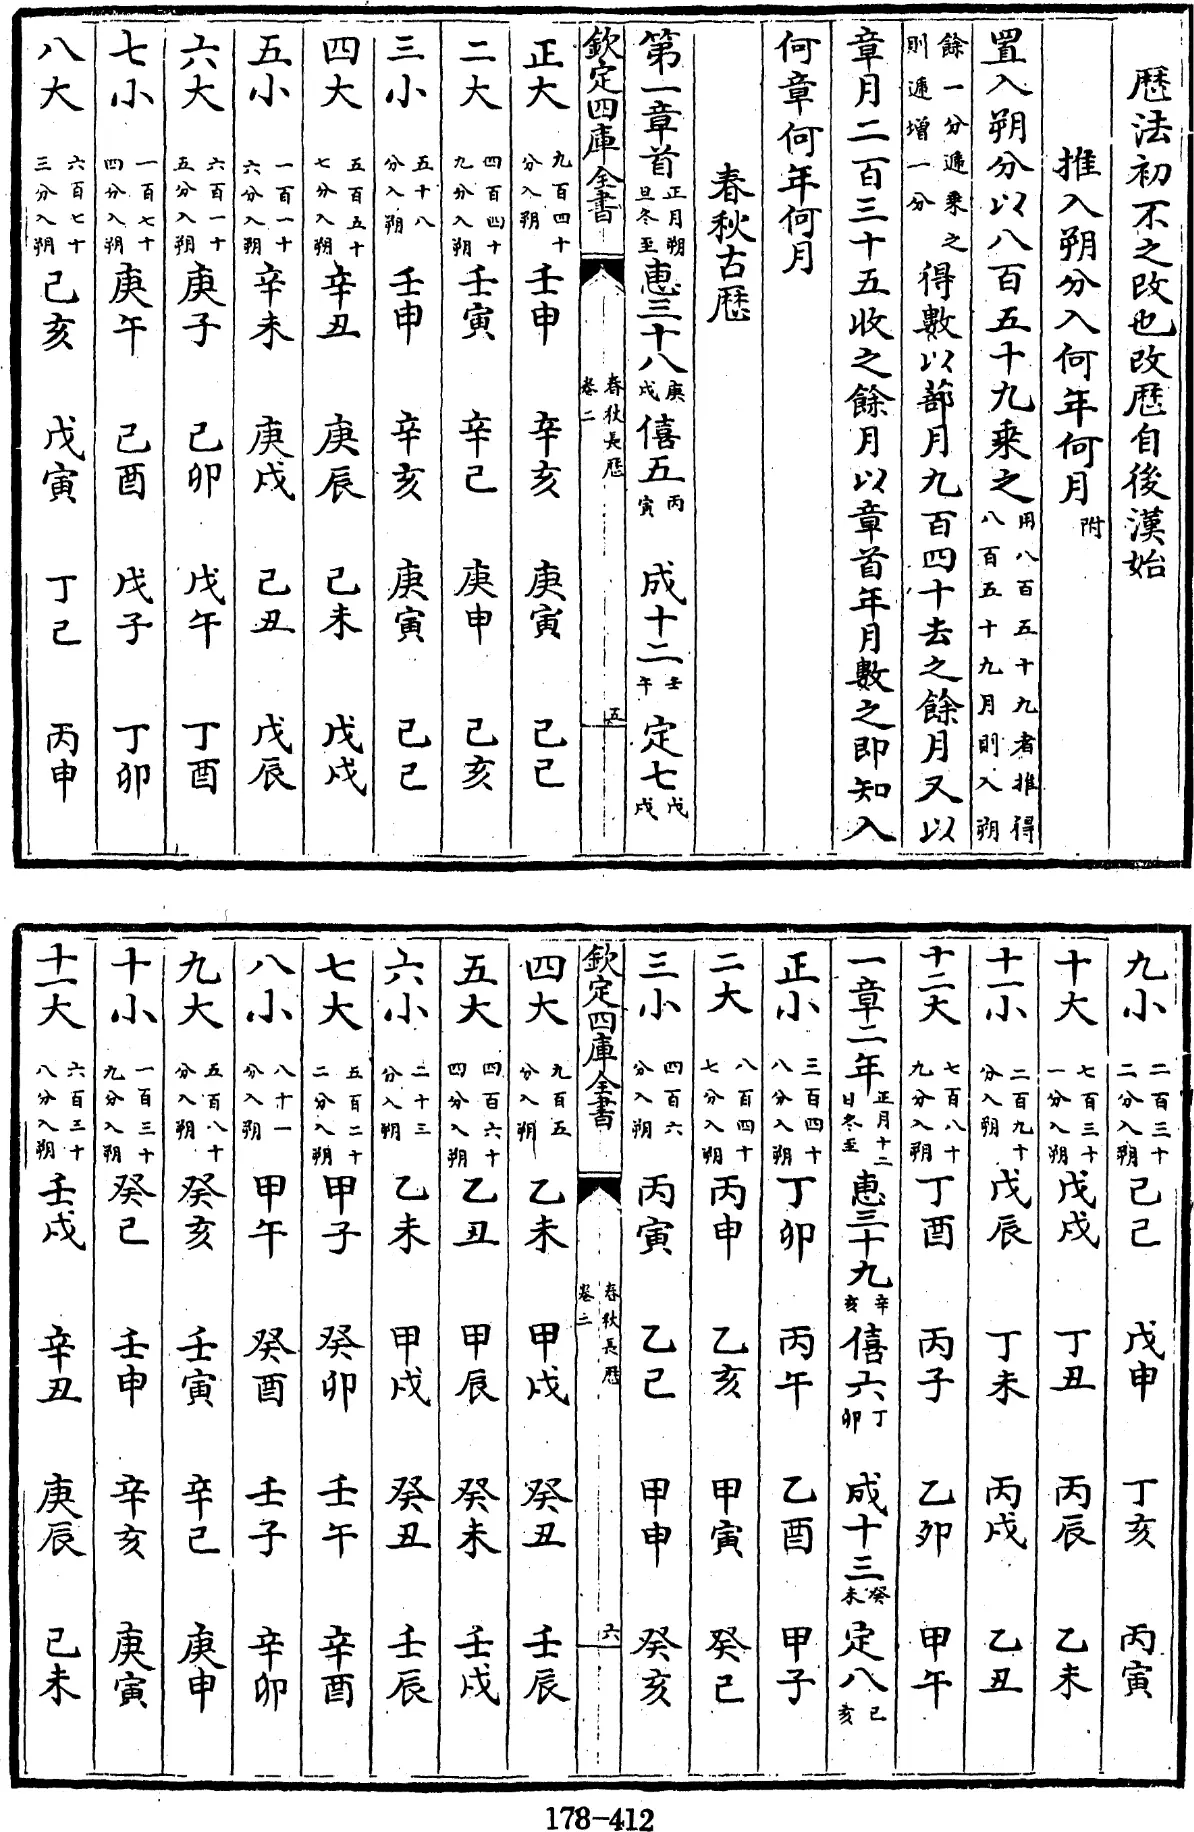 歴法初不之改也改歴自後漢始
推入朔分入何年何月附
置入朔分以八百五十九乗之用八百五十九者推得八百五十九月則入朔
餘一分遞乗之則遞增一分得數以蔀月九百四十去之餘月又以
章月二百三十五收之餘月以章首年月數之即知入
何章何年何月
春秋古歴
第一章首正月朔旦冬至惠三十八庚戌僖五丙寅成十二壬午定七戊戌
欽定四庫全書 春秋長歴卷二 五
正大九百四十分入朔壬申 辛亥 庚寅 己巳
二大四百四十九分入朔壬寅 辛巳 庚申 己亥
三小五十八分入朔壬申 辛亥 庚寅 己巳
四大五百五十七分入朔辛丑 庚辰 己未 戊戌
五小一百一十六分入朔辛未 庚戌 己丑 戊辰
六大六百一十五分入朔庚子 己卯 戊午 丁酉
七小一百七十四分入朔庚午 己酉 戊子 丁卯
八大六百七十三分入朔己亥 戊寅 丁巳 丙申
九小二百三十二分入朔己巳 戊申 丁亥 丙寅
十大七百三十一分入朔戊戌 丁丑 丙辰 乙未
十一小二百九十分入朔戊辰 丁未 丙戌 乙丑
十二大七百八十九分入朔丁酉 丙子 乙卯 甲午
一章二年正月十二日冬至惠三十九辛亥僖六丁卯成十三癸未定八己亥
正小三百四十八分入朔丁卯 丙午 乙酉 甲子
二大八百四十七分入朔丙申 乙亥 甲寅 癸巳
三小四百六分入朔丙寅 乙巳 甲申 癸亥
欽定四庫全書 春秋長歴卷二 六
四大九百五分入朔乙未 甲戌 癸丑 壬辰
五大四百六十四分入朔乙丑 甲辰 癸未 壬戌
六小二十三分入朔乙未 甲戌 癸丑 壬辰
七大五百二十二分入朔甲子 癸卯 壬午 辛酉
八小八十一分入朔甲午 癸酉 壬子 辛卯
九大五百八十分入朔癸亥 壬寅 辛巳 庚申
十小一百三十九分入朔癸巳 壬申 辛亥 庚寅
十一大六百三十八分入朔壬戌 辛丑 庚辰 己未
178-412